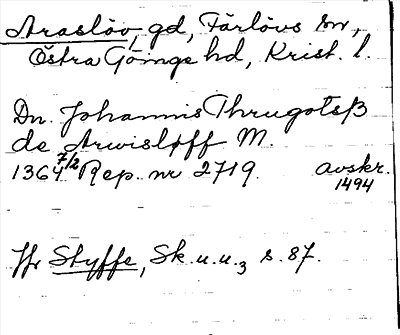 Araslöv, gd, Färlövs sn,
Östra Göinge hd, Krist. l.
Dn. Johannis Thrugotsß
de Arwisløff M.
1364 7/2 Rep. nr 2719. avskr.
1494
Jfr Styffe, Sk.u.u.3 s.87.